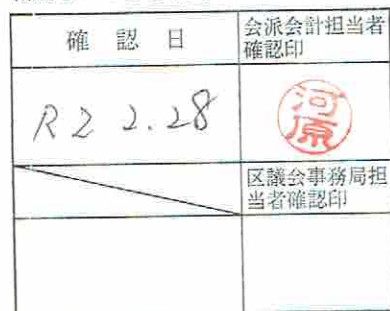 確認日
会派会計担当者
確認印
R2 2.28
河原
区議会事務局担
当者確認印